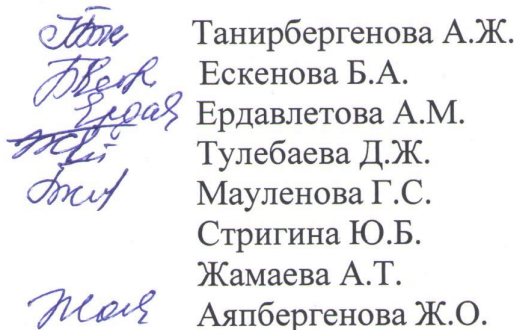 Танирбергенова А.Ж.
Ескенова Б.А.
Ердавлетова А.М.
Тулебаева Д.Ж.
Мауленова Г.С.
Стригина Ю.Б.
Жамаева А.Т.
Аяпбергенова Ж.О.